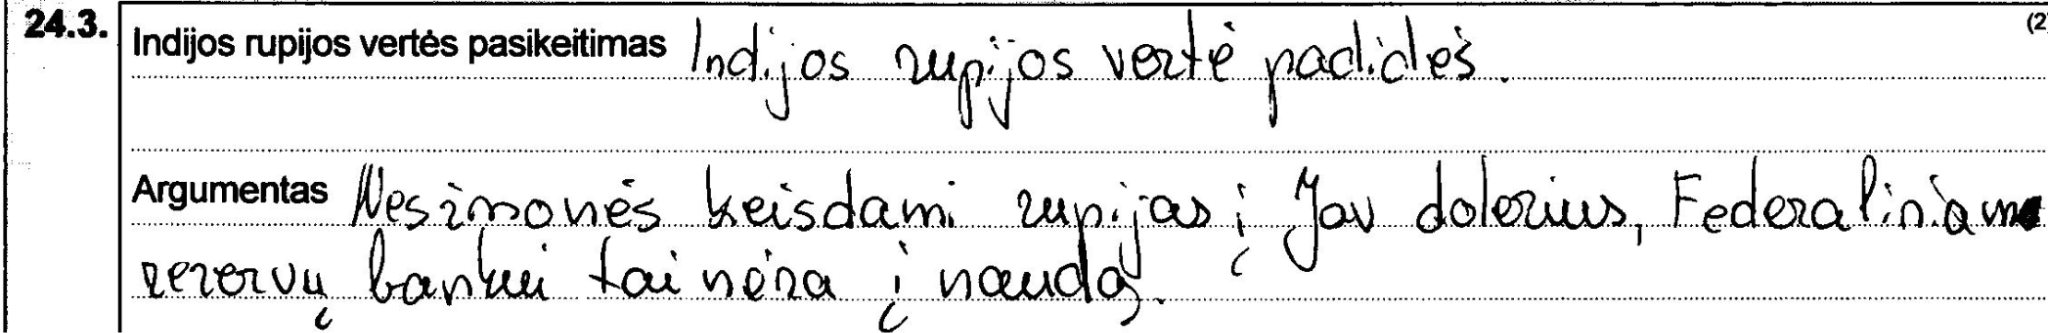 24.3. Indijos rupijos vertės pasikeitimas Indijos rupijos vertė padidės. (2
Argumentas Nes žmonės keisdami rupijas į Jav dolerius, Federaliniam
rezervų bankui tai nėra į naudą.